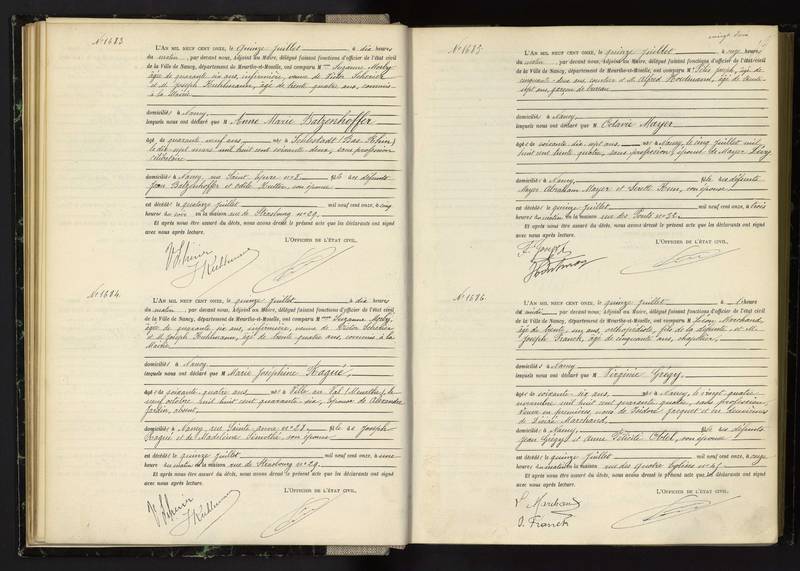 N° 1683.
L'AN MIL NEUF CENT ONZE, le quinze juillet à dix heures
du matin, par devant nous, Adjoint au Maire, délégué faisant fonctions d'officier de l'état civil
de la Ville de Nancy, département de Meurthe-et-Moselle, ont comparu M me Suzanne
âgée de quarante six ans, infirmière, veuve de Victor
et M Joseph Kuhlmann, âgé de trente quatre ans, commis
à la Mairie
domiciliés à Nancy
lesquels nous ont déclaré que M Anne Marie Balzenhoffer
âgée de quarante neuf ans née à Schlestadt (Bas-Rhin)
le dix sept mars mil huit cent soixante deux, sans profession
célibataire
domiciliée à Nancy, rue Saint n° 8 fille des défunts
Jean Balzenhoffer et Odile son épouse
est décédée le quatorze juillet mil neuf cent onze, à cinq
heures du soir en la maison rue de Strasbourg n° 29.
Et après nous être assuré du décès, nous avons dressé le présent acte que les déclarants ont signé
avec nous après lecture.
L'OFFICIER DE L'ÉTAT CIVIL,
J Kuhlmann
N° 1684.
L'AN MIL NEUF CENT ONZE, le quinze juillet à dix heures
du matin, par devant nous, Adjoint au Maire, délégué faisant fonctions d'officier de l'état civil
de la Ville de Nancy, département de Meurthe-et-Moselle, ont comparu M me Suzanne
âgée de quarante six ans, infirmière, veuve de Victor
et M Joseph Kuhlmann, âgé de trente quatre ans, commis à la
Mairie
domiciliés à Nancy
lesquels nous ont déclaré que M Marie Joséphine Ragué
âgée de soixante quatre ans née à Ville en Val (Meurthe), le
neuf octobre mil huit cent quarante six, épouse de Alexandre
Jardin, absent
domiciliée à Nancy, rue Sainte Anne n° 28 fille de Joseph
Ragué et de Madeleine son épouse
est décédée le quinze juillet mil neuf cent onze, à une
heure du matin en la maison rue de Strasbourg n° 29.
Et après nous être assuré du décès, nous avons dressé le présent acte que les déclarants ont signé
avec nous après lecture.
L'OFFICIER DE L'ÉTAT CIVIL,
J Kuhlmann
N° 1685.
L'AN MIL NEUF CENT ONZE, le quinze juillet à onze heures
du matin, par devant nous, Adjoint au Maire, délégué faisant fonctions d'officier de l'état civil
de la Ville de Nancy, département de Meurthe-et-Moselle, ont comparu M Félix Joseph, âgé de
cinquante deux ans, courtier et M Alfred âgé de trente
sept ans, garçon de bureau
domiciliés à Nancy
lesquels nous ont déclaré que M Octavie Mayer
âgée de soixante dix sept ans née à Nancy, le cinq juillet mil
huit cent trente quatre, sans profession, épouse de Mayer Lévy
domiciliée à Nancy fille des défunts
Mayer Abraham Mayer et son épouse
est décédée le quinze juillet mil neuf cent onze, à trois
heures du matin en la maison rue des Ponts n° 52.
Et après nous être assuré du décès, nous avons dressé le présent acte que les déclarants ont signé
avec nous après lecture.
L'OFFICIER DE L'ÉTAT CIVIL,
F. Joseph
N° 1686.
L'AN MIL NEUF CENT ONZE, le quinze juillet à heures
par devant nous, Adjoint au Maire, délégué faisant fonctions d'officier de l'état civil
de la Ville de Nancy, département de Meurthe-et-Moselle, ont comparu M Léon Marchand,
âgé de trente ans, orthopédiste, fils de la défunte, et M
Joseph Franck, âgé de cinquante ans, chapelier,
domiciliés à Nancy
lesquels nous ont déclaré que M Virginie Grégy
âgée de soixante six ans née à Nancy, le vingt quatre
novembre mil huit cent quarante quatre, sans profession
veuve en premières noces de Isidore Jacquet et en deuxièmes
de Désiré Marchand,
domiciliée à Nancy, fille des défunts
Jean Grégy et Anne Félicité son épouse
est décédée le quinze juillet mil neuf cent onze, à onze
heures du matin en la maison rue des Quatre Eglises n° 45
Et après nous être assuré du décès, nous avons dressé le présent acte que les déclarants ont signé
avec nous après lecture.
L'OFFICIER DE L'ÉTAT CIVIL,
L. Marchand
J. Franck